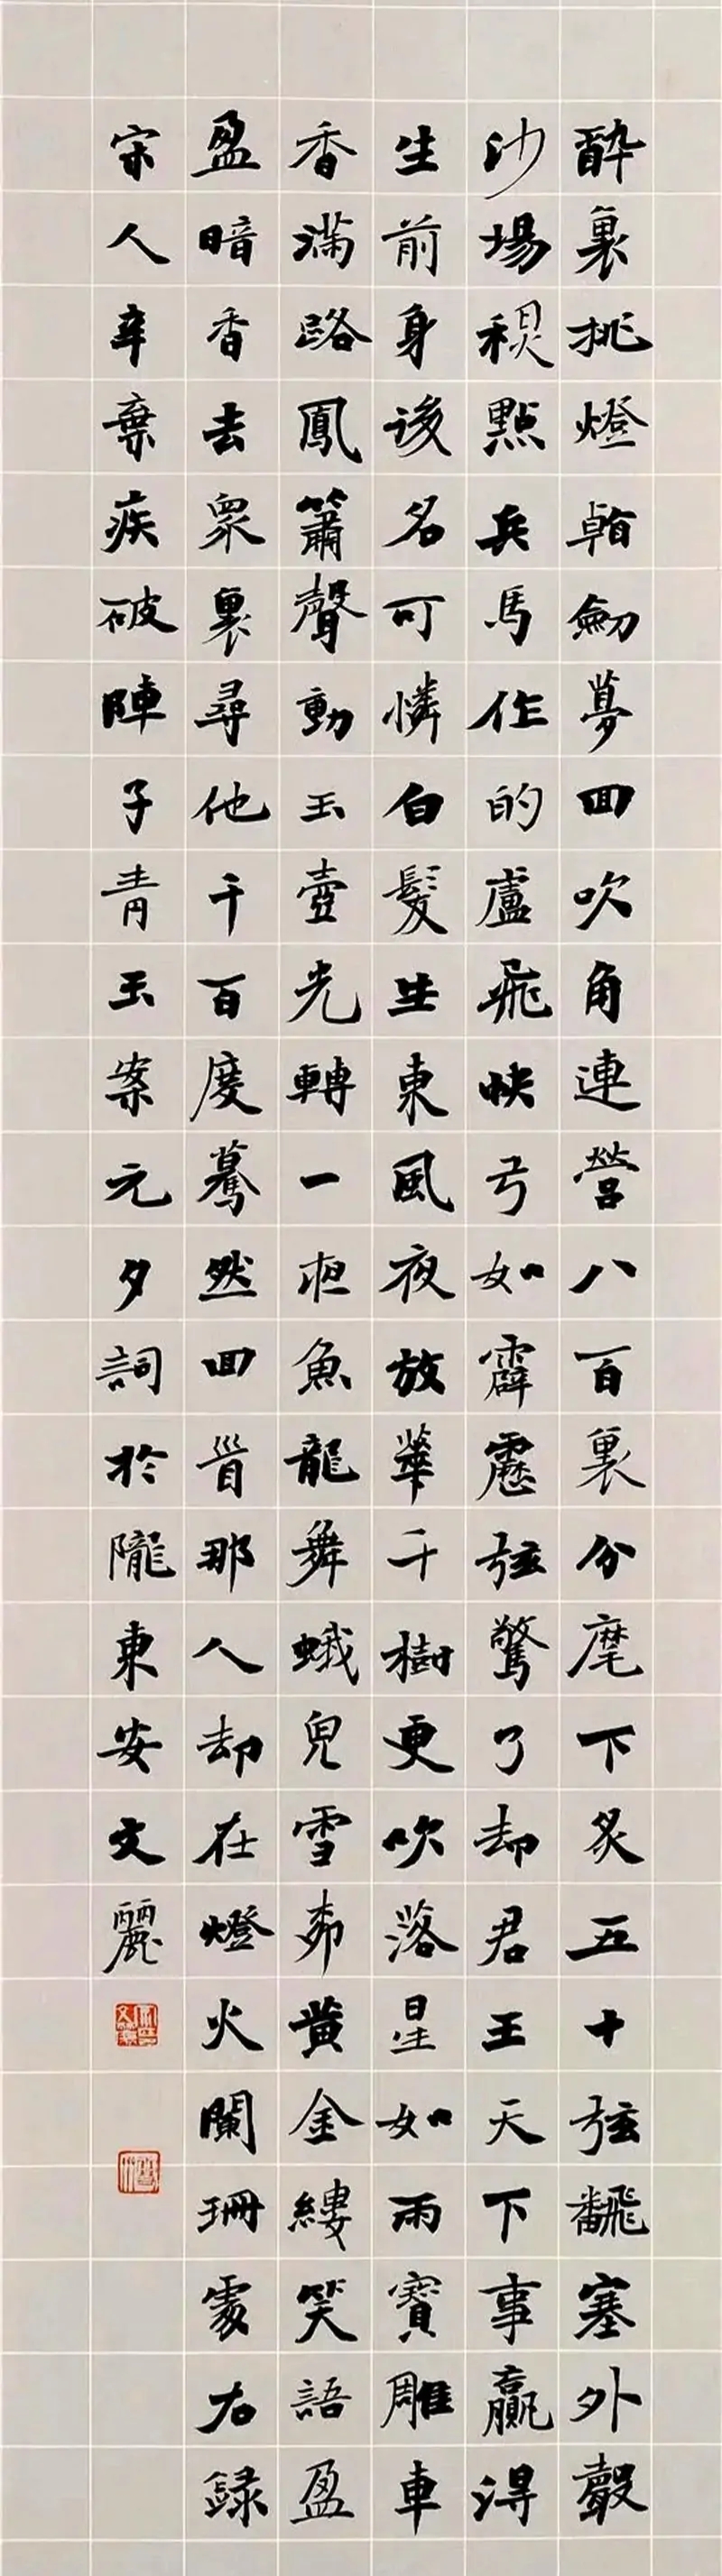 醉裏挑燈看劍夢回吹角連營八百裏分麾下炙五十弦飜塞外聲
沙場秋點兵馬作的盧飛快弓如霹靂弦驚了却君王天下事贏得
生前身後名可憐白髮生東風夜放華千樹更吹落星如雨寶雕車
香滿路鳳簫聲動玉壺光轉一夜魚龍舞蛾兒雪柳黃金縷笑語盈
盈暗香去眾裏尋他千百度驀然回首那人却在燈火闌珊處右錄
宋人辛棄疾破陣子青玉案元夕詞於隴東安文麗